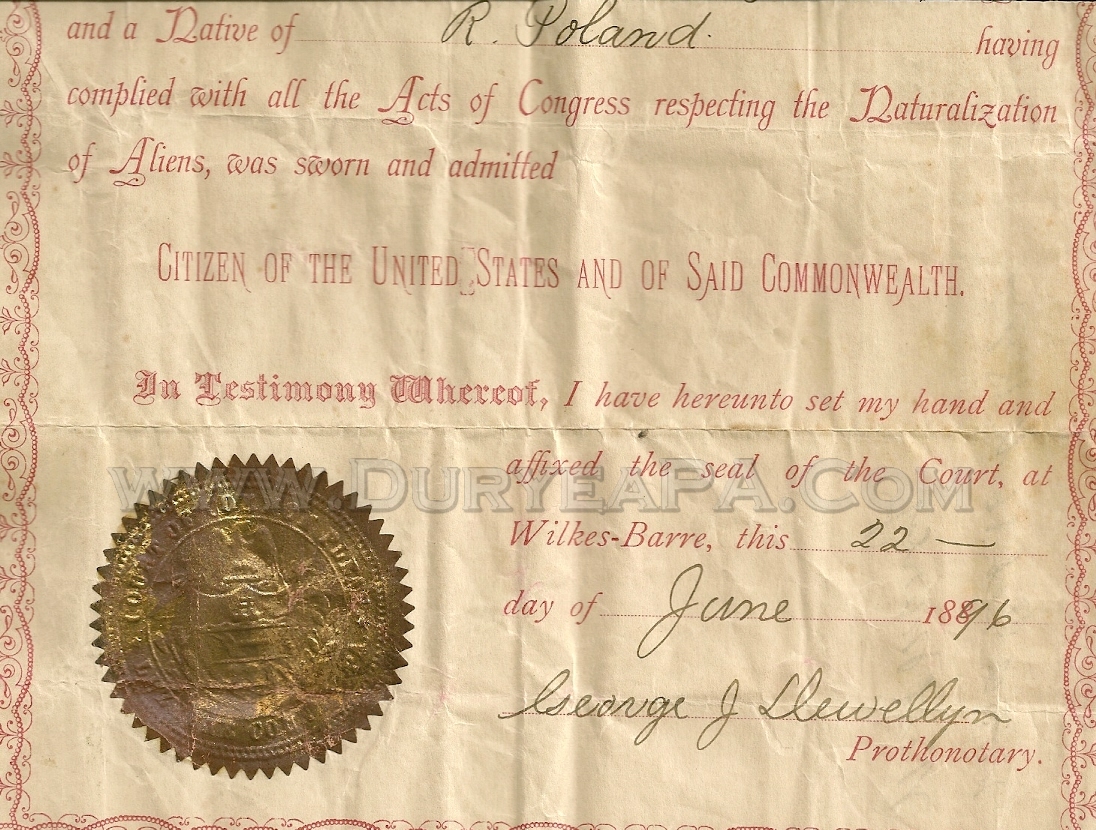 and a Native of R. Poland. having
complied with all the Acts of Congress respecting the Naturalization
of Aliens, was sworn and admitted
CITIZEN OF THE UNITED STATES AND OF SAID COMMONWEALTH.
In Testimony Whereof, I have hereunto set my hand and
affixed the seal of the Court, at
www.DuryeaPA.Com
Wilkes-Barre, this 22 —
day of June 1896
George J Llewellyn
Prothonotary.